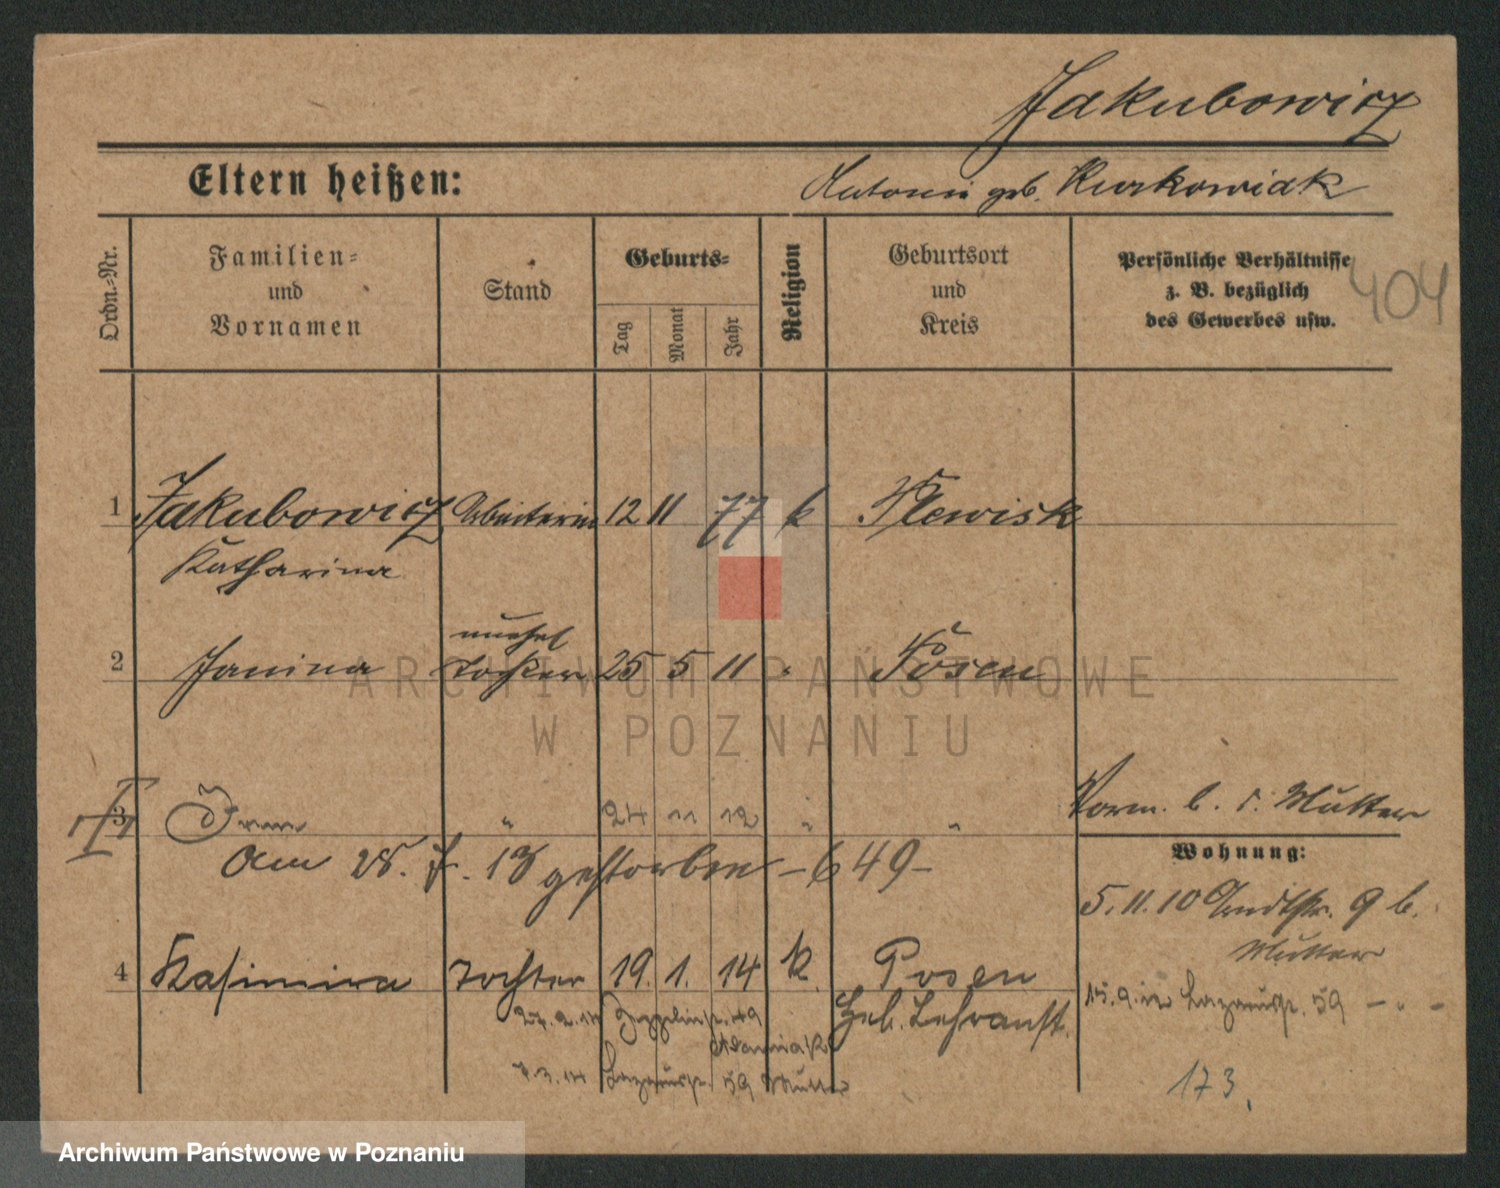 Jakubowicz
Eltern heißen:
Antonin geb. Kurkowiak
Ordn.-Nr.
Familien-
und
Vornamen
Stand
Geburts-
Tag
Monat
Jahr
Religion
Geburtsort
und
Kreis
Persönliche Verhältnisse
z. B. bezüglich
des Gewerbes usw.
404
1 Jakubowicz Arbeiterin 12 11 77 k Plewisk
Katharina
unehel
2 Janina Tochter 25 5 11 " Posen
3 " 24 11 12 " "
Vorm. b. d. Mutter
am 25. 7. 13 gestorben – 649 –
Wohnung:
5. 11. 10 9 b.
Mutter
4 Kasimira Tochter 19. 1. 14 k. Posen
Heb. Lehranst.
15. 9. 12 Lazarusstr. 59 – " –
27. 2. 14 Zeppelinstr. 49
Adamiak
7. 3. 14 Lazarusstr. 59 Mutter
173.
ARCHIWUM PAŃSTWOWE
W POZNANIU
Archiwum Państwowe w Poznaniu